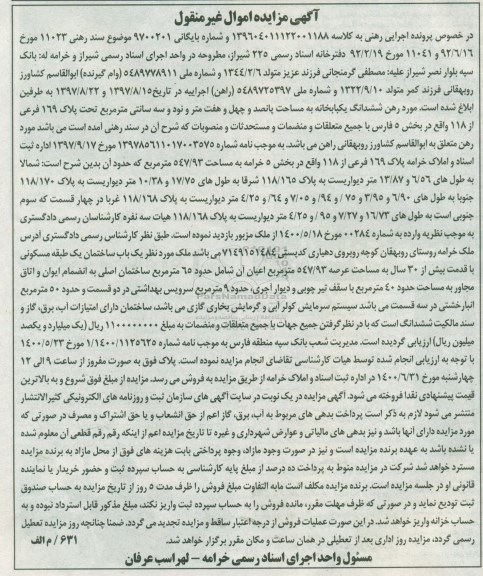 آگهی مزایده اموال غیرمنقول
در خصوص پرونده اجرایی رهنی به کلاسه ۱۳۹۶۰۴۰۱۱۱۲۲۰۰۱۱۸۸ و شماره بایگانی ۹۷۰۰۲۰۱ موضوع سند رهنی ۱۱۰۲۳ مورخ
۹۲/۶/۱۶ و ۱۱۰۴۱ مورخ ۹۲/۲/۱۹ دفترخانه اسناد رسمی ۲۳۵ شیراز، مطروحه در واحد اجرای اسناد رسمی شیراز و خرامه له: بانک
سپه بلوار نصر شیراز علیه: مصطفی گرمنجانی فرزند عزیز متولد ۱۳۴۴/۲/۶ و شماره ملی ۵۴۸۹۷۷۸۹۱۱ (وام گیرنده) ابوالقاسم کشاورز
رویهقانی فرزند کمر متولد ۱۳۲۲/۹/۱۰ و شماره ملی ۵۴۸۹۷۲۵۳۹۷ (راهن) اجراییه در تاریخ۱۳۹۷/۸/۱۵ و ۱۳۹۷/۸/۲۲ به طرفین
ابلاغ شده است. مورد رهن ششدانگ یکبابخانه به مساحت پانصد و چهل و هفت متر و نود و سه سانتی مترمربع تحت پلاک ۱۶۹ فرعی
از ۱۱۸ واقع در بخش ۵ فارس با جمیع متعلقات و منضمات و مستحدثات و منصوبات که شرح آن در سند رهنی آمده است می باشد مورد
رهن متعلق به ابوالقاسم کشاورز رویهقانی راهن می باشد. به موجب نامه شماره ۱۳۹۷۸۵۶۱۱۰۱۷۰۰۳۵۷۵ مورخ ۱۳۹۷/۹/۱۷ اداره ثبت
اسناد و املاک خرامه پلاک ۱۶۹ فرعی از ۱۱۸ واقع در بخش ۵ خرامه به مساحت ۵۴۷/۹۳ مترمربع که حدود آن بدین شرح است: شمالا
به طول های ۶/۵۶ و ۱۳/۸۷ متر دیواریست به پلاک ۱۱۸/۱۶۵ شرقا به طول های ۱۷/۷۵ و ۱۰/۳۸ متر دیواریست به پلاک ۱۱۸/۱۷۰
جنوبا به طول های ۶/۹۰ و ۳/۹۵ و ۷۵ / و ۹۴ / و ۷/۰۵ و ۶۴ / و ۴/۲۵ متر دیواریست به پلاک ۱۱۸/۱۶۸ غربا در چهار قسمت که سوم
جنوبی است به طول های ۱۶/۷۳ و ۷/۲۷ و ۹۵ / و ۴/۲۵ متر دیواریست به پلاک ۱۱۸/۱۶۸ هیات سه نفره کارشناسان رسمی دادگستری
به موجب نظریه وارده به شماره ۰۰۲۸۴ مورخ ۱۴۰۰/۵/۱۸ از ملک مزبور بازدید نموده است. طبق نظر کارشناس رسمی دادگستری آدرس
ملک خرامه روستای رویهقان کوچه روبروی دهیاری کدپستی ۷۱۴۹۱۵۱۴۸۴ می باشد ملک مورد نظر یک باب ساختمان یک طبقه مسکونی
با قدمت بیش از ۳۰ سال به مساحت عرصه ۵۴۷/۹۳ مترمربع اعیان آن شامل حدود ۶۵ مترمربع ساختمان اصلی به انضمام ایوان و اتاق
مجاور به مساحت حدود ۴۰ مترمربع با سقف تیر چوبی و دیوار آجری، حدود ۹ مترمربع سرویس بهداشتی در دو قسمت و حدود ۵۰ مترمربع
انبار خشتی در سه قسمت می باشد سیستم سرمایش کولر آبی و گرمایش بخاری گازی می باشد، ساختمان دارای امتیازات آب، برق، گاز و
سند مالکیت ششدانگ است که با در نظر گرفتن جمیع جهات با جمیع متعلقات و منضمات به مبلغ ۱۱۰۰۰۰۰۰۰۰ ریال (یک میلیارد و یکصد
میلیون ریال) ارزیابی گردیده است. مدیریت شعب بانک سپه منطقه فارس به موجب نامه شماره ۱/۱۴۰۰/۱۱۲۵۶۲۵ مورخ ۱۴۰۰/۵/۲۳
با توجه به ارزیابی انجام شده توسط هیات کارشناسی تقاضای انجام مزایده نموده است. پلاک فوق به صورت مفروز از ساعت ۹ الی ۱۲
چهارشنبه مورخ ۱۴۰۰/۶/۳۱ در اداره ثبت اسناد و املاک خرامه از طریق مزایده به فروش می رسد. مزایده از مبلغ فوق شروع و به بالاترین
قیمت پیشنهادی نقدا فروخته می شود. آگهی مزایده در یک نوبت در سایت آگهی های سازمان ثبت و روزنامه های الکترونیکی کثیرالانتشار
منتشر می شود لازم به ذکر است پرداخت بدهی های مربوط به آب، برق، گاز اعم از حق انشعاب و یا حق اشتراک و مصرف در صورتی که
مورد مزایده دارای آنها باشد و نیز بدهی های مالیاتی و عوارض شهرداری و غیره تا تاریخ مزایده اعم از اینکه رقم قطعی آن معلوم شده
یا نشده باشد به عهده برنده مزایده است و نیز در صورت وجود مازاد، وجوه پرداختی بابت هزینه های فوق از محل مازاد به برنده مزایده
مسترد خواهد شد شرکت در مزایده منوط به پرداخت ده درصد از مبلغ پایه کارشناسی به حساب سپرده ثبت و حضور خریدار یا نماینده
قانونی او در جلسه مزایده است. برنده مزایده مکلف است مابه التفاوت مبلغ فروش را ظرف مدت ۵ روز از تاریخ مزایده به حساب صندوق
ثبت تودیع نماید و در صورتی که ظرف مهلت مقرر، مانده فروش را به حساب سپرده ثبت واریز نکند، مبلغ مذکور قابل استرداد نبوده و به
حساب خزانه واریز خواهد شد. در این صورت عملیات فروش از درجه اعتبار ساقط و مزایده تجدید می گردد. ضمنا چنانچه روز مزایده تعطیل
رسمی گردد، مزایده روز اداری بعد از تعطیلی در همان ساعت و مکان مقرر برگزار خواهد شد. ۶۳۱ / م الف
مسئول واحد اجرای اسناد رسمی خرامه - لهراسب عرفان